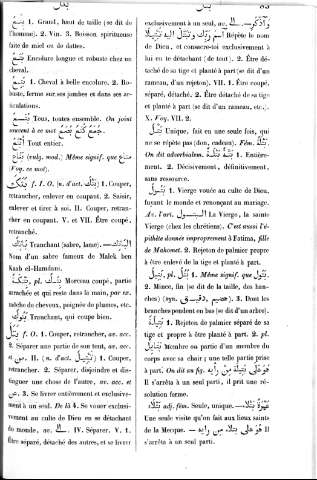 بتل
بتل
83
بَتِعٌ 1. Grand, haut de taille (se dit de
l'homme). 2. Vin. 3. Boisson spiritueuse
faite de miel ou de dattes.
Encolure longue et robuste chez un
cheval.
1. Cheval à belle encolure. 2. Ro-
buste, ferme sur ses jambes et dans ses ar-
ticulations.
Tous, toutes ensemble. On joint
souvent à ce mot
Tout entier.
(vulg. mod.) Même signif. que متاع
(Voy. ce mot).
بَتَكَ f. I. O. (n. d'act. بَتْكٌ) 1. Couper,
retrancher, enlever en coupant. 2. Saisir,
enlever et tirer à soi. II. Couper, retran-
cher en coupant. V. et VII. Être coupé,
retranché.
Tranchant (sabre, lame).
Nom d'un sabre fameux de Malek ben
Kaab el-Hamdanu.
بِتْكَةٌ, pl. بِتَكٌ Morceau coupé, partie
arrachée et qui reste dans la main, par ex.
mèche de cheveux, poignée de plumes, etc.
بَتُوكٌ Tranchant, qui coupe bien.
بَتَلَ f. O. 1. Couper, retrancher, av. acc.
2. Séparer une partie de son tout, av. acc.
et من. II. (n. d'act. تَبْتِيلٌ) 1. Couper,
retrancher. 2. Séparer, disjoindre et dis-
tinguer une chose de l'autre, av. acc. et
من. 3. Se livrer entièrement et exclusive-
ment à un seul. De là 4. Se vouer exclusi-
vement au culte de Dieu en se détachant
du monde, av. الى. IV. Séparer. V. 1.
Être séparé, détaché des autres, et se livrer
exclusivement à un seul, av. الى. —
Répète le nom
de Dieu, et consacre-toi exclusivement à
lui en te détachant (de tout). 2. Être dé-
taché de sa tige et planté à part (se dit d'un
rameau, d'un rejeton). VII. 1. Être coupé,
séparé, détaché. 2. Être détaché de sa tige
et planté à part (se dit d'un rameau, etc.).
X. Voy. VII. 2.
بَتْلٌ Unique, fait en une seule fois, qui
ne se répète pas (don, cadeau). Fém. بَتْلَةٌ.
On dit adverbialem. 1. Entière-
ment. 2. Décisivement, définitivement,
sans ressource.
بَتُولٌ 1. Vierge vouée au culte de Dieu,
fuyant le monde et renonçant au mariage.
Av. l'art. البتول La Vierge, la sainte
Vierge (chez les chrétiens). C'est aussi l'é-
pithète donnée improprement à Fatima, fille
de Mahomet. 2. Rejeton de palmier propre
à être enlevé de la tige et planté à part.
بَتِيلٌ, pl. بُتُلٌ 1. Même signif. que بَتُولٌ.
2. Mince, fin (se dit de la taille, des han-
ches) (syn. دقيق, هضيم). 3. Dont les
branches pendent en bas (se dit d'un arbre).
بَتِيلَةٌ 1. Rejeton de palmier séparé de sa
tige et propre à être planté à part. 2. pl.
بَتَائِلُ Membre ou partie d'un membre du
corps avec sa chair ; une telle partie prise
à part. On dit au fig.
Il s'arrêta à un seul parti, il prit une ré-
solution ferme.
بَتْلَاءُ adj. fém. Seule, unique. — عُمْرَةٌ بَتْلَاءُ
Une seule visite qu'on fait aux lieux saints
de la Mecque. — Il
s'arrêta à un seul parti.